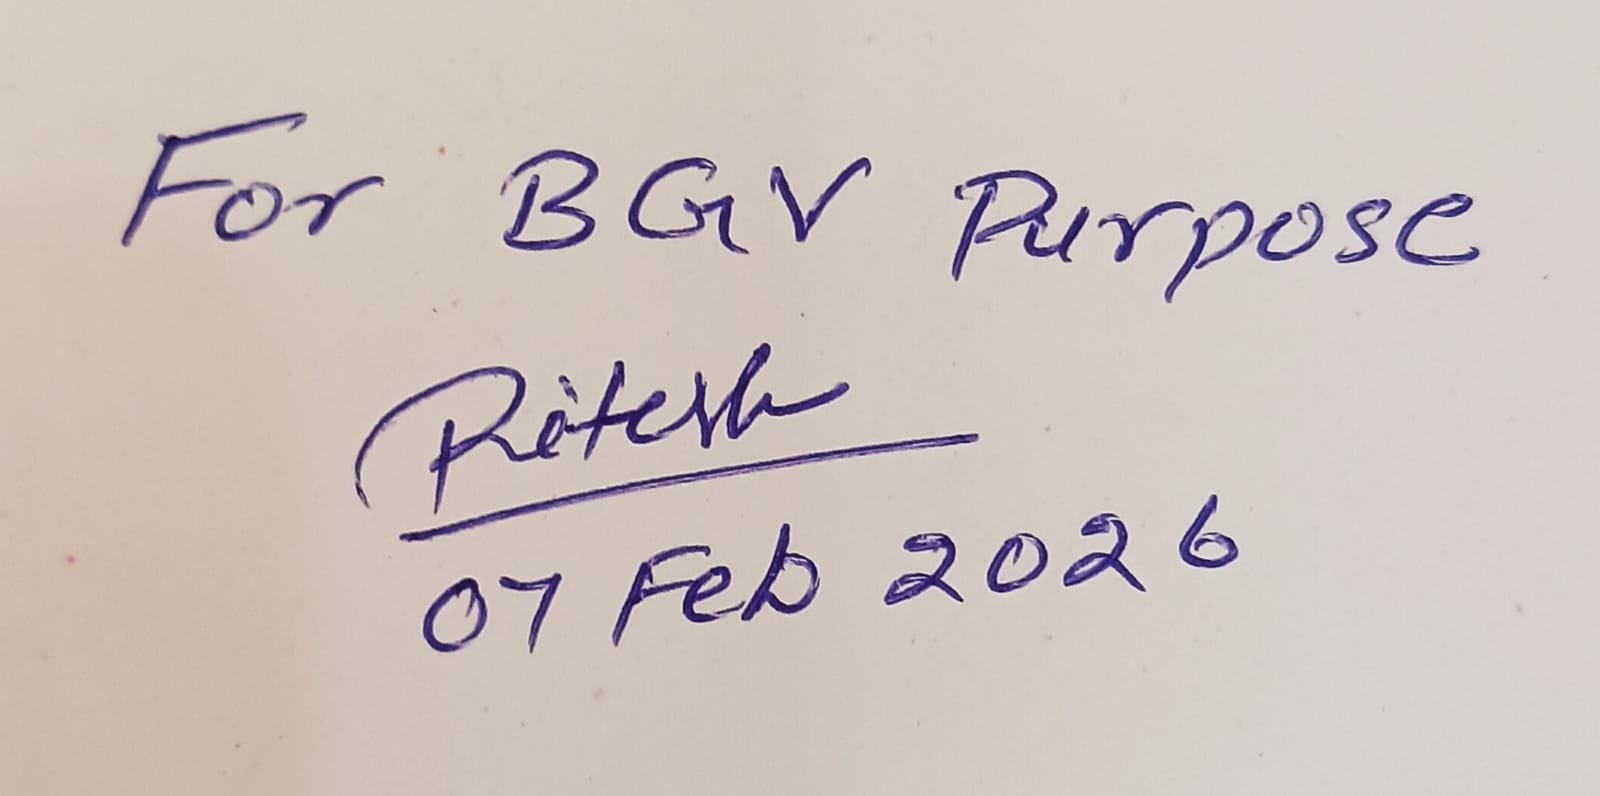 For BGV Purpose
Ritesh
07 Feb 2026